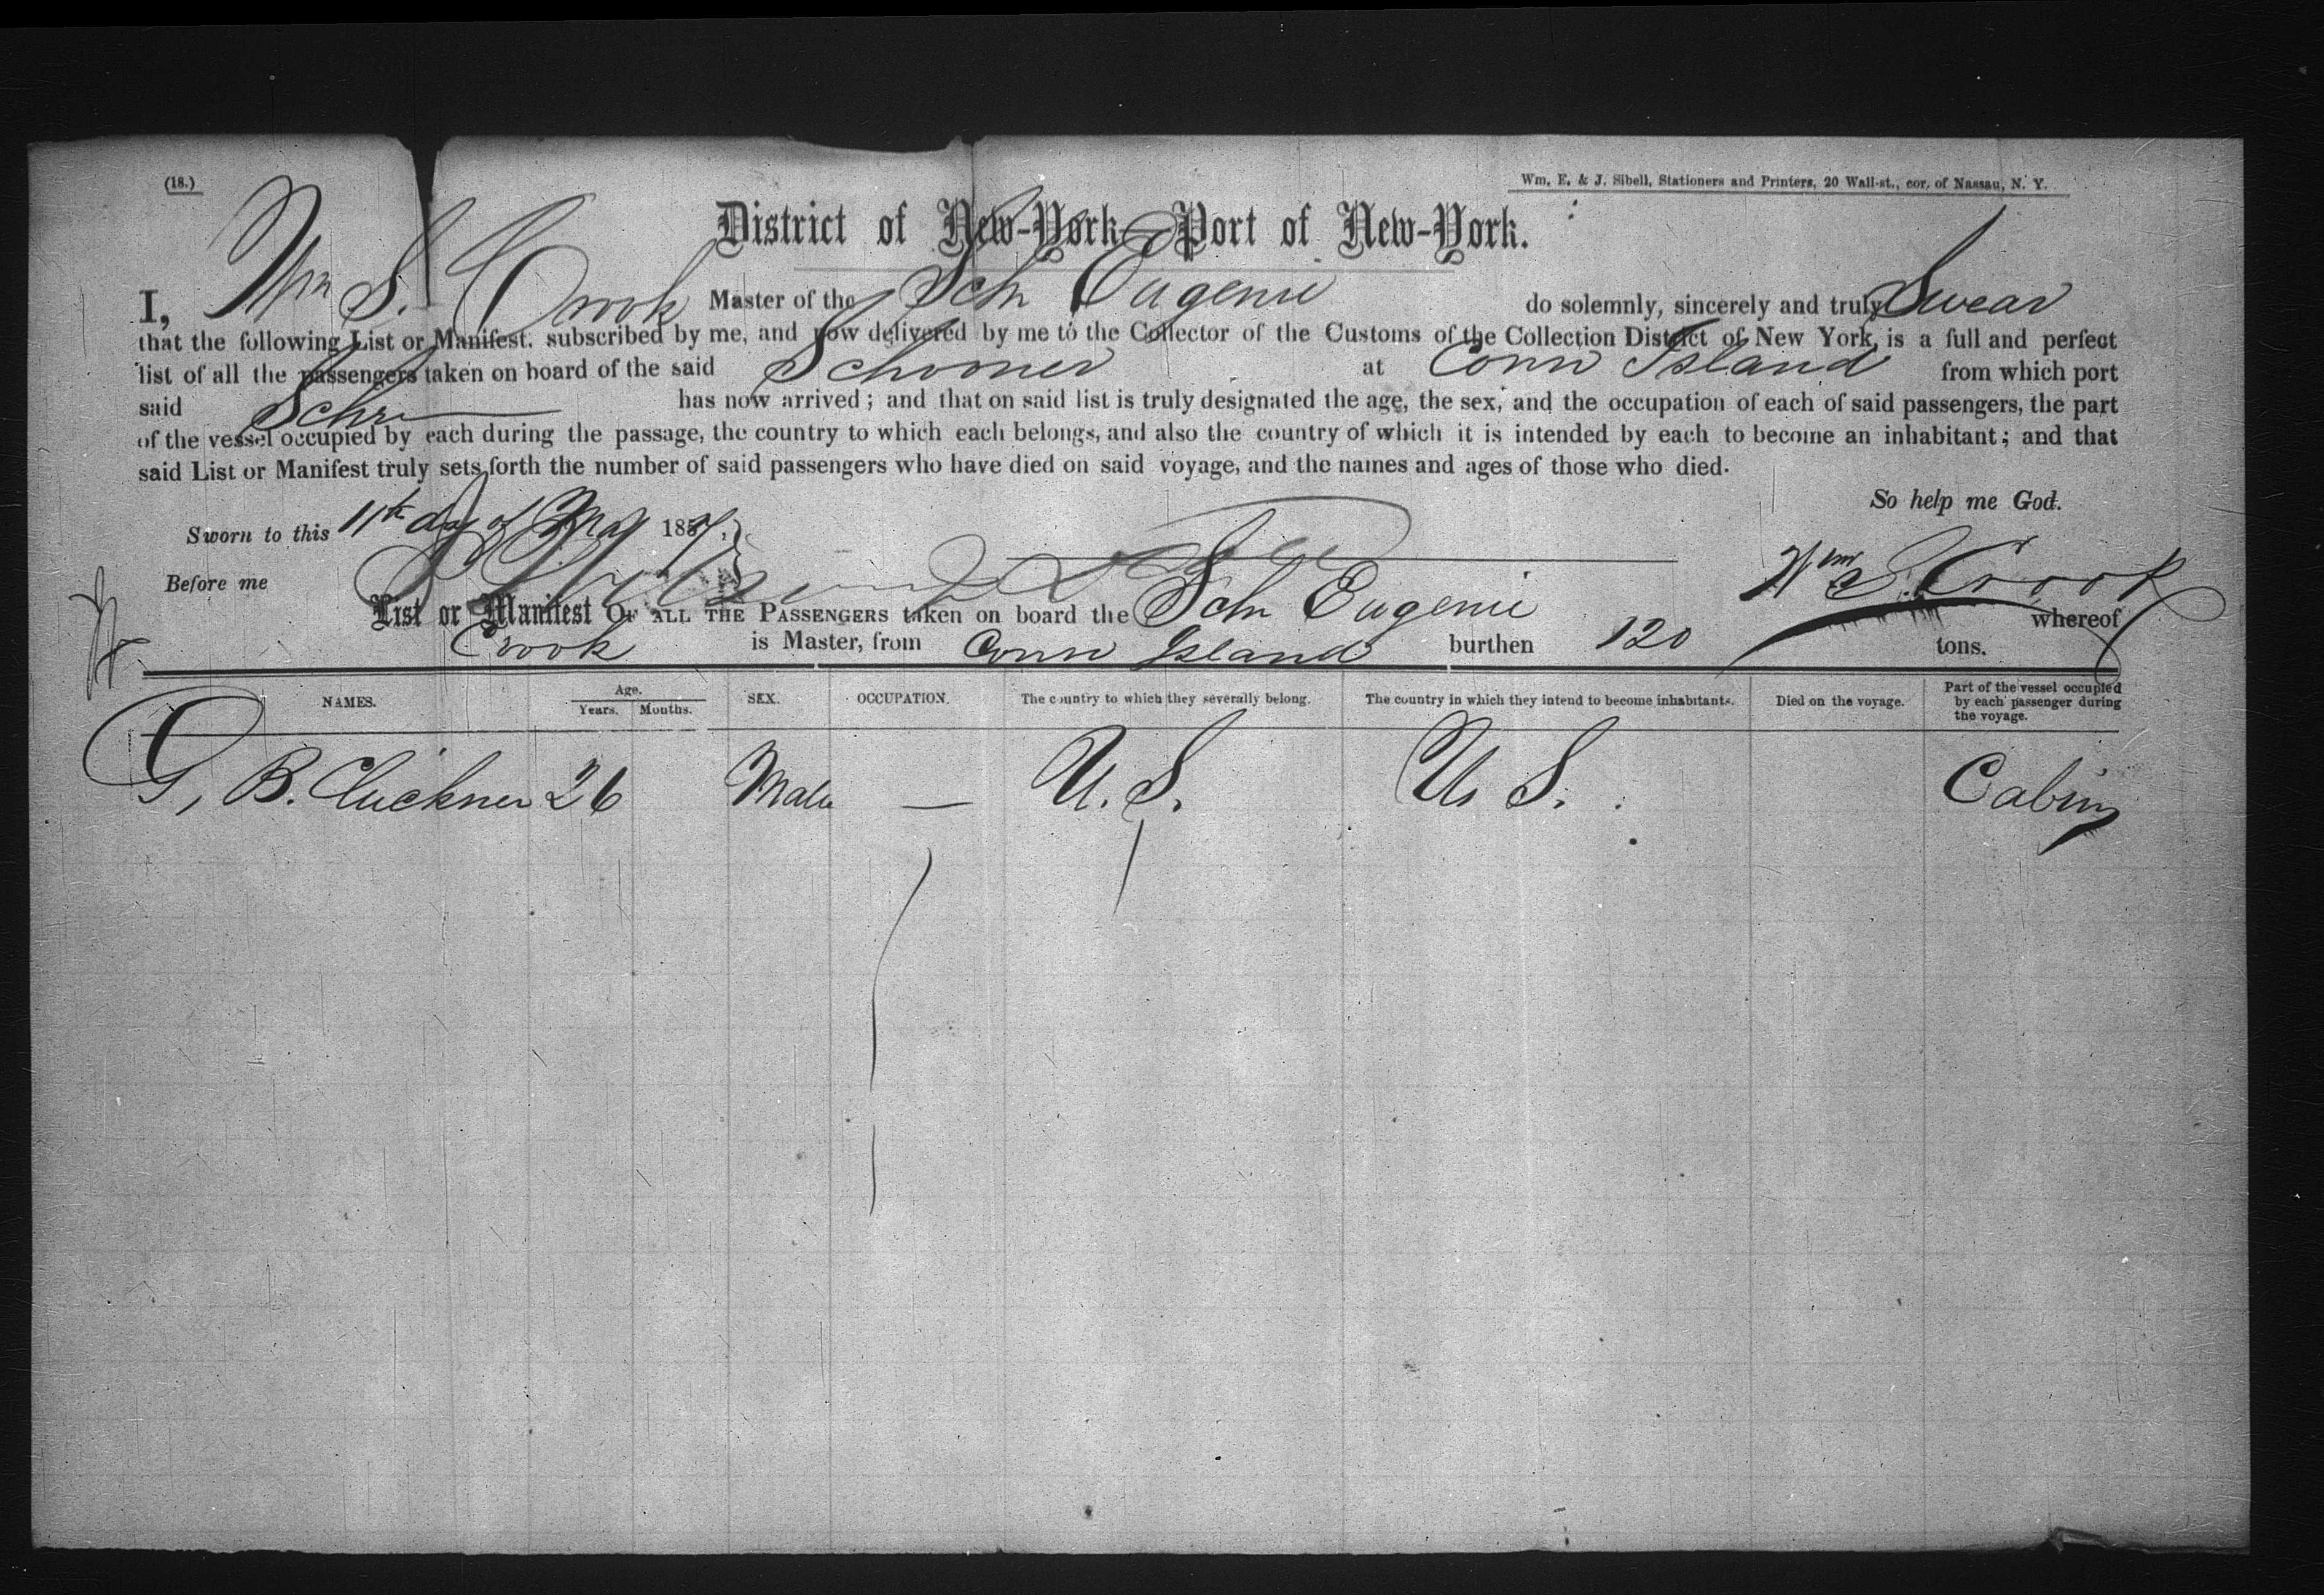 (18.)
Wm. E. & J. Sibell, Stationers and Printers, 20 Wall-st., cor. of Nassau, N. Y.
District of New-York—Port of New-York.
I, Wm S. Crook Master of the Sch Eugenie do solemnly, sincerely and truly Swear
that the following List or Manifest. subscribed by me, and now delivered by me to the Collector of the Customs of the Collection District of New York, is a full and perfect
list of all the passengers taken on board of the said Schooner at Conn Island from which port
said Schr has now arrived; and that on said list is truly designated the age, the sex, and the occupation of each of said passengers, the part
of the vessel occupied by each during the passage, the country to which each belongs, and also the country of which it is intended by each to become an inhabitant; and that
said List or Manifest truly sets forth the number of said passengers who have died on said voyage, and the names and ages of those who died.
So help me God.
Sworn to this 11th day of May 185
Before me
Wm S. Crook
List or Manifest OF ALL THE PASSENGERS taken on board the Sch Eugenie whereof
Crook is Master, from Conn Island burthen 120 tons.
NAMES. Age. Years. Months. SEX. OCCUPATION. The country to which they severally belong. The country in which they intend to become inhabitants. Died on the voyage. Part of the vessel occupied by each passenger during the voyage.
G, B. Cluckner 26 Male — U. S. U. S. Cabin